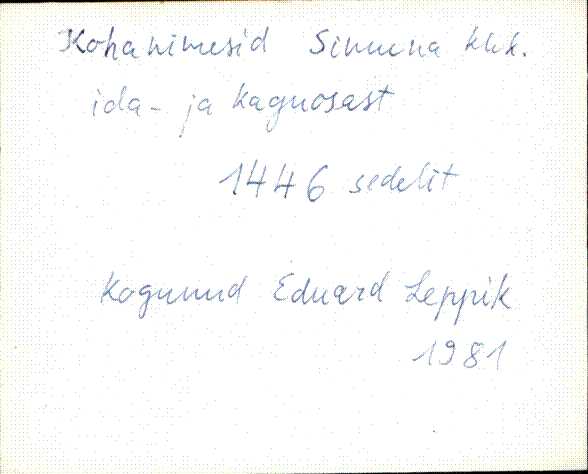 Kohanimesid Simuna khk.
ida- ja kaguosast
1446 sedelit
Kogunud Eduard Leppik
1981